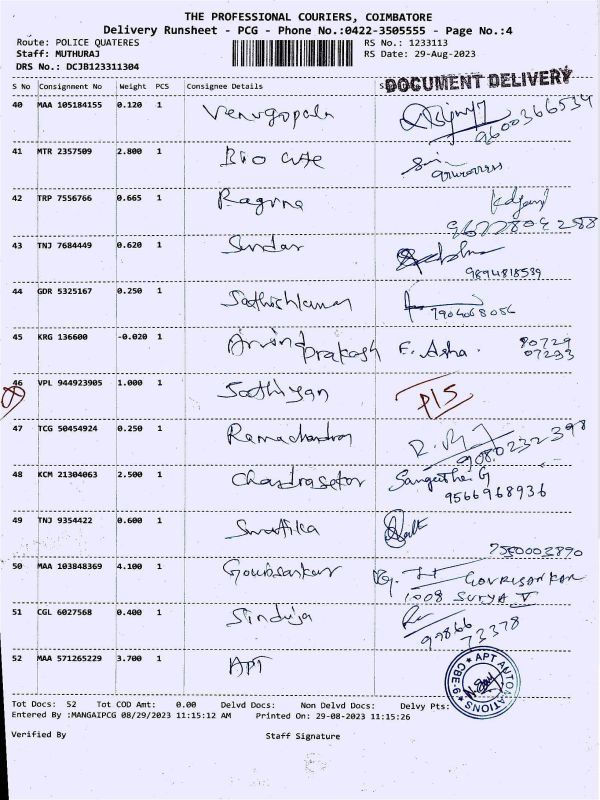 THE PROFESSIONAL COURIERS, COIMBATORE
Delivery Runsheet - PCG - Phone No.:0422-3505555 - Page No.:4
Route: POLICE QUATERES RS No.: 1233113
Staff: MUTHURAJ RS Date: 29-Aug-2023
DRS No.: DCJB123311304
DOCUMENT DELIVERY
S No Consignment No Weight PCS Consignee Details
40 MAA 105184155 0.120 1 Venugopala 9600366534
41 MTR 2357509 2.800 1 Bio cute
42 TRP 7556766 0.665 1 Raguna 9677804288
43 TNJ 7684449 0.620 1 Sundar
9894818539
44 GDR 5325167 0.250 1 Sathishkumar 7904068056
45 KRG 136600 -0.020 1 Arvind prakash E. Asha. 80729
07293
46 VPL 944923905 1.000 1 Sathiyan P/S
47 TCG 50454924 0.250 1 Ramachandran 9080232398
48 KCM 21304063 2.500 1 Chandrasekar Sangeetha G
9566968936
49 TNJ 9354422 0.600 1 Swathika
7560003890
50 MAA 103848369 4.100 1 Gowrisankar GOVRISANKAR
1008 SURYA V
51 CGL 6027568 0.400 1 Sinduja 99866
73378
52 MAA 571265229 3.700 1 APT APT AUTOMATIONS CBE-9
Tot Docs: 52 Tot COD Amt: 0.00 Delvd Docs: Non Delvd Docs: Delvy Pts:
Entered By :MANGAIPCG 08/29/2023 11:15:12 AM Printed On: 29-08-2023 11:15:26
Verified By Staff Signature